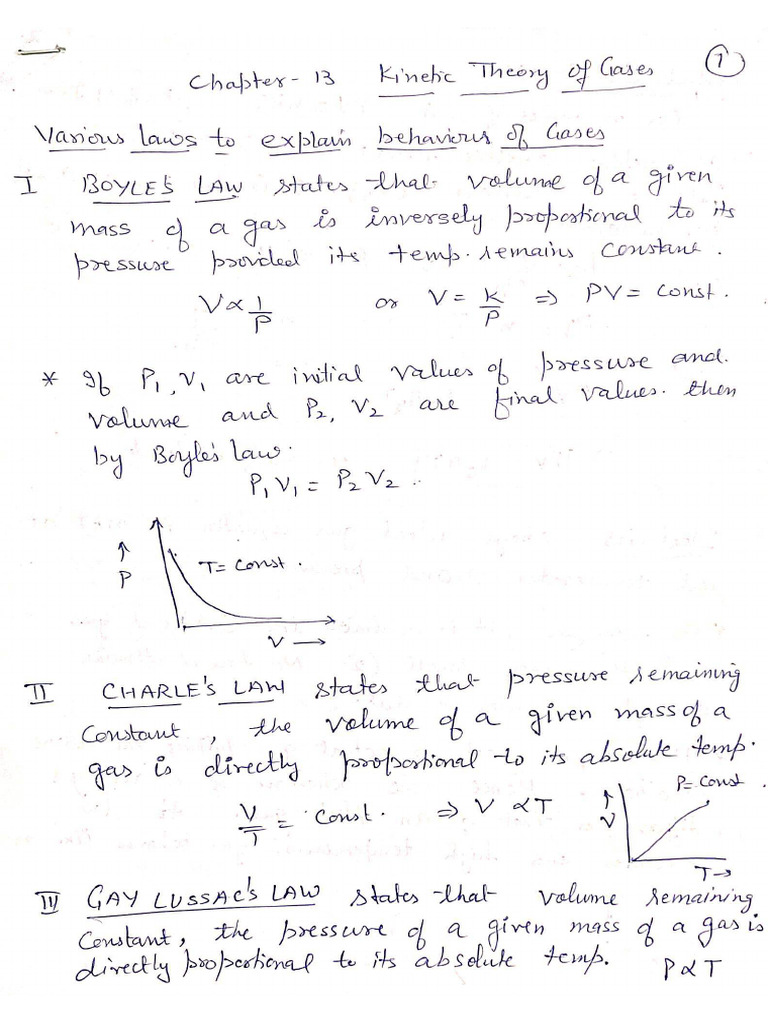 ①
Chapter - 13 Kinetic Theory of Gases
Various laws to explain behaviour of Gases
I BOYLE'S LAW states that volume of a given
mass of a gas is inversely proportional to its
pressure provided its temp. remains constant.
V ∝ 1/P or V = K/P ⇒ PV = Const.
* If P₁, V₁ are initial values of pressure and
volume and P₂, V₂ are final values. then
by Boyle's law.
P₁V₁ = P₂V₂
↑
P
T = Const.
V →
II CHARLE'S LAW states that pressure remaining
Constant, the volume of a given mass of a
gas is directly proportional to its absolute temp.
V/T = Const. ⇒ V ∝ T
P = Const.
↑
V
T →
III GAY LUSSAC'S LAW states that volume remaining
Constant, the pressure of a given mass of a gas is
directly proportional to its absolute temp. P ∝ T